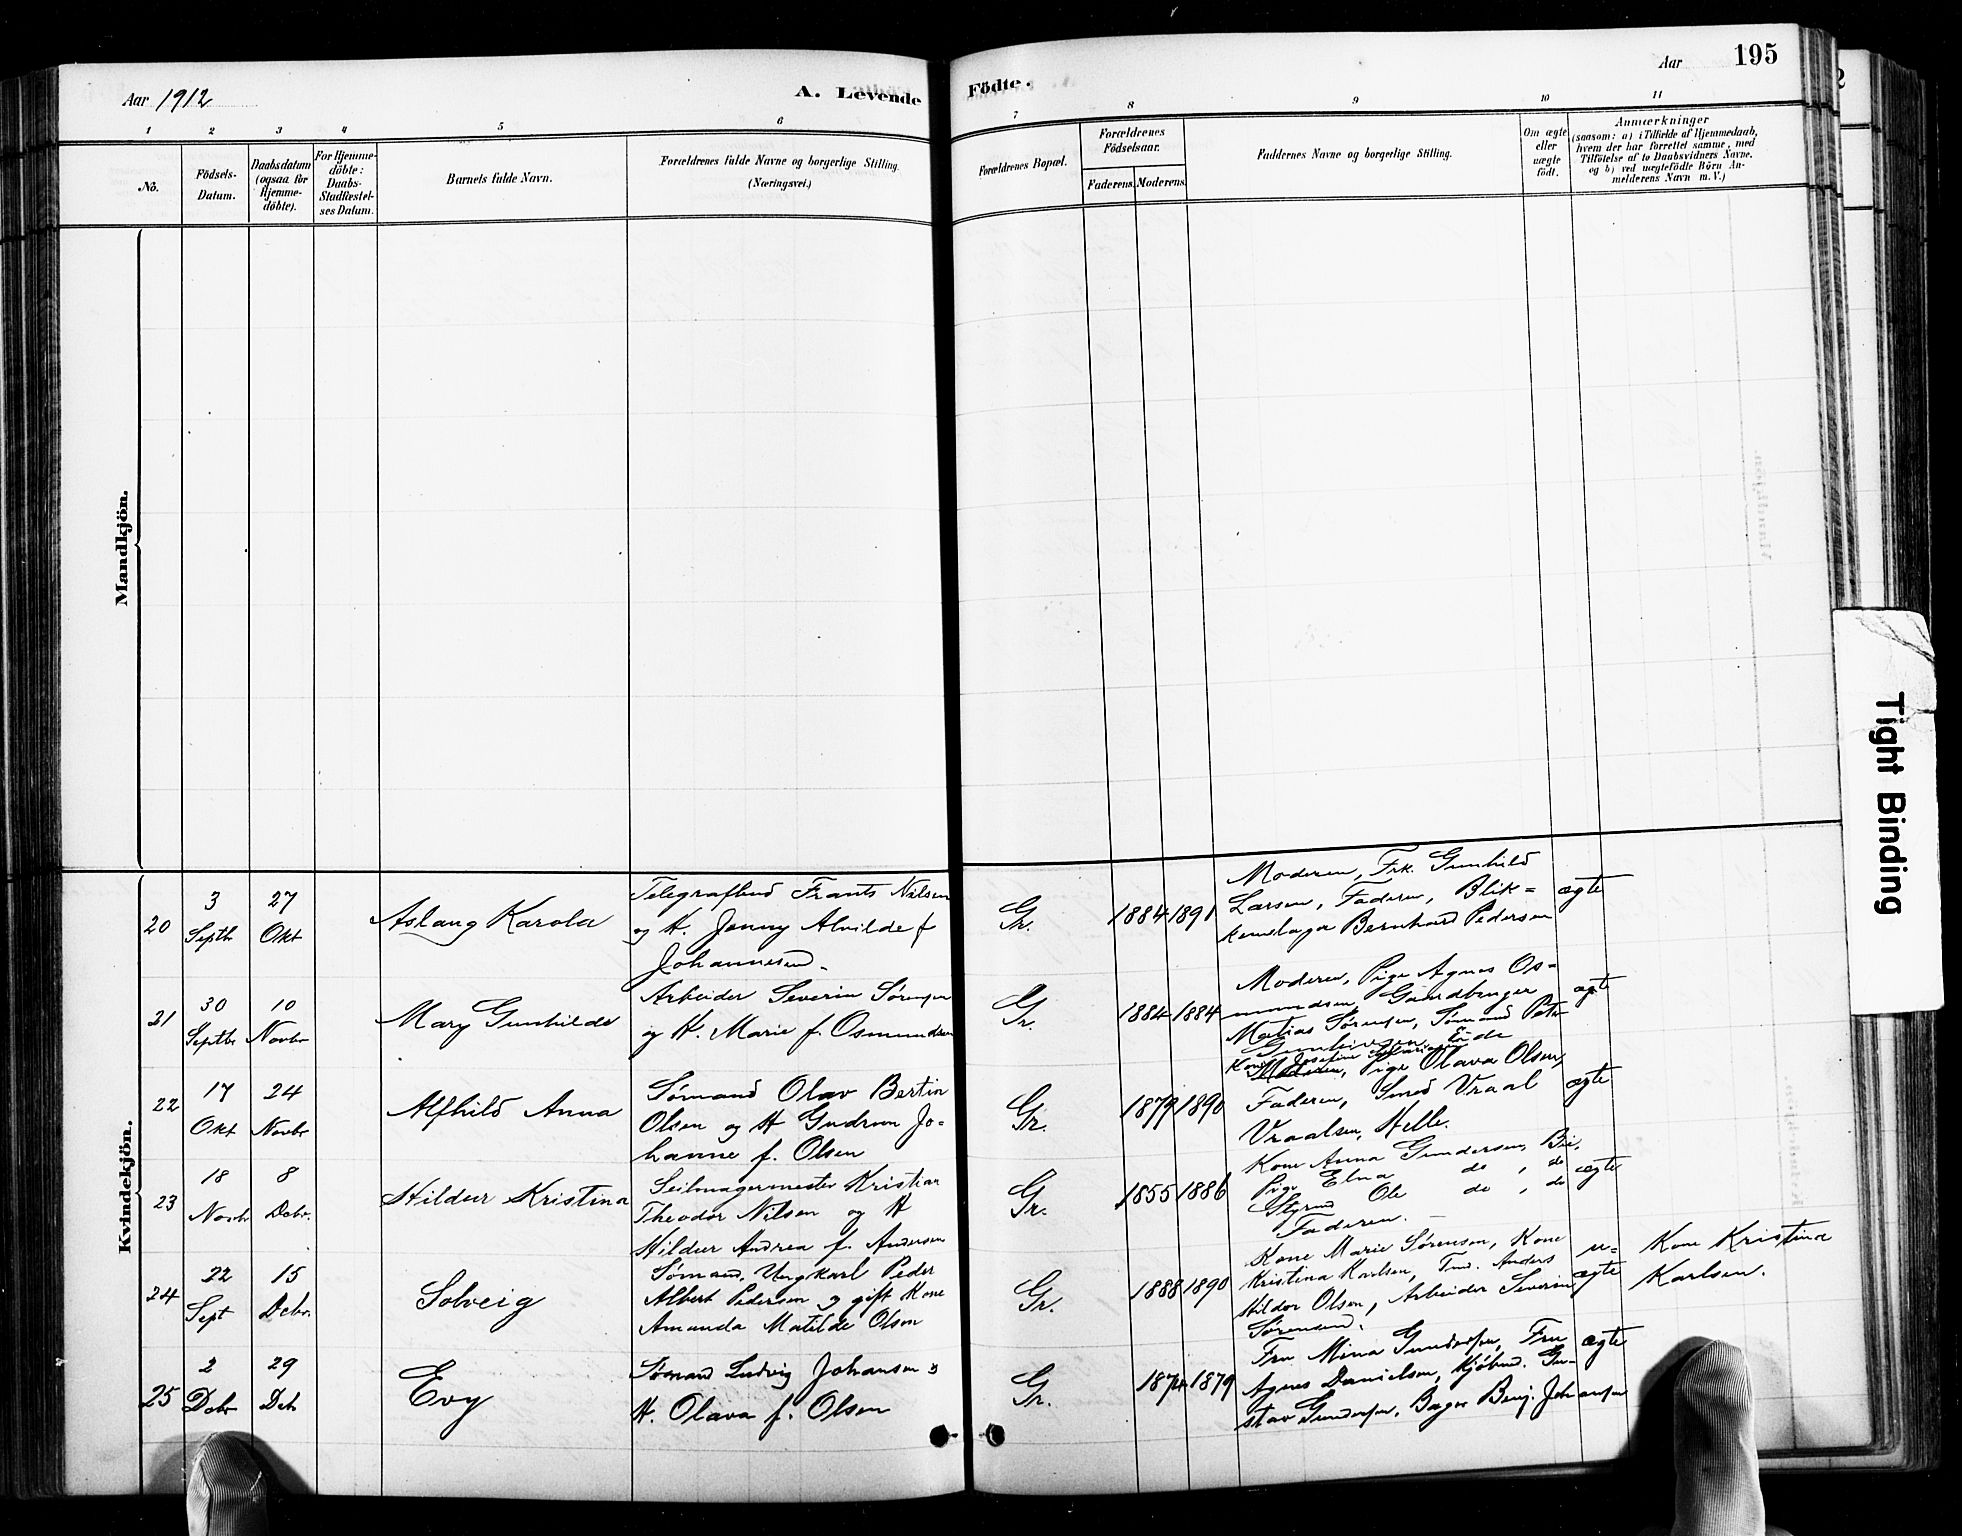 Aar 1912
A. Levende
Födte.
Aar
195
1 2 3 4 5 6 7 8 9 10 11
No.
Födsels-
Datum.
Daabsdatum
(ogsaa for
Hjemme-
döbte).
For Hjemme-
döbte:
Daabs-
Stadfæstel-
ses Datum.
Barnets fulde Navn.
Forældrenes fulde Navne og borgerlige Stilling.
(Næringsvei.)
Forældrenes Bopæl.
Forældrenes
Födselsaar.
Faderens. Moderens.
Faddernes Navne og borgerlige Stilling.
Om ægte
eller
uægte
födt.
Anmærkninger
(saasom: a) i Tilfælde af Hjemmedaab,
hvem der har forrettet samme, med
Tilföielse af to Daabsvidners Navne,
og b) ved uægtefödte Börn An-
melderens Navn m. V.)
Mandkjön.
Kvindekjön.
20
3
Septbr
27
Okt
Aslaug Karola
Telegrafbud Frants Nilsen
og H. Jenny Alvilde f
Johannesen
Gr.
1884 1891
Moderen, Frk. Gunhild
Larsen, Faderen, Blik=
kenslager Bernhard Pedersen
ægte
21
30
Septbr
10
Novbr
Mary Gunhilde
Arbeider Severin Sørensen
og H. Marie f. Osmundsen
Gr.
1884 1884
Moderen, Pige Agnes Os=
mundsen, Gaardbruger
Matias Sørensen, Sømand Peter
ægte
22
17
Okt
24
Novbr
Alfhild Anna
Sømand Olav Bertin
Olsen og H Gudrun Jo=
hanne f. Olsen
Gr.
1879 1890
Moderen, Pige Olava Olsen,
Faderen, Smed Vraal
Vraalsen, Helle.
ægte
23
18
Novbr
8
Debr.
Hildur Kristina
Seilmagermester Kristian
Theodor Nilsen og H
Hildur Andrea f. Andersen
Gr.
1855 1886
Kone Anna Gundersen, Bie,
Pige Elna do, do
Styrmd Ole do, do
Faderen.
ægte
24
22
Sept
15
Debr.
Solveig
Sømand, Ungkarl Peder
Albert Pedersen og gift Kone
Amanda Matilde Olsen
Gr.
1888 1890
Kone Marie Sørensen, Kone
Kristina Karlsen, Tmd. Anders
Hildor Olsen, Arbeider Severin
Sørensen.
u=
ægte
Kone Kristina
Karlsen.
25
2
Debr
29
Deb
Evy
Sømand Ludvig Johansen og
H. Olava f. Olsen
Gr.
1874 1879
Fru Mina Gundersen, Fru
Agnes Danielsen, Kjøbmd. Gu=
stav Gundersen, Bager Benj. Johansen
ægte
Tight Binding